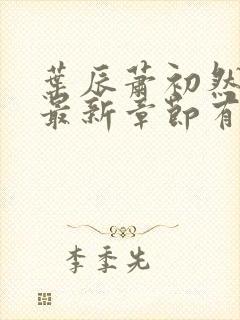 葉辰蕭初然
最新章節有
李季先